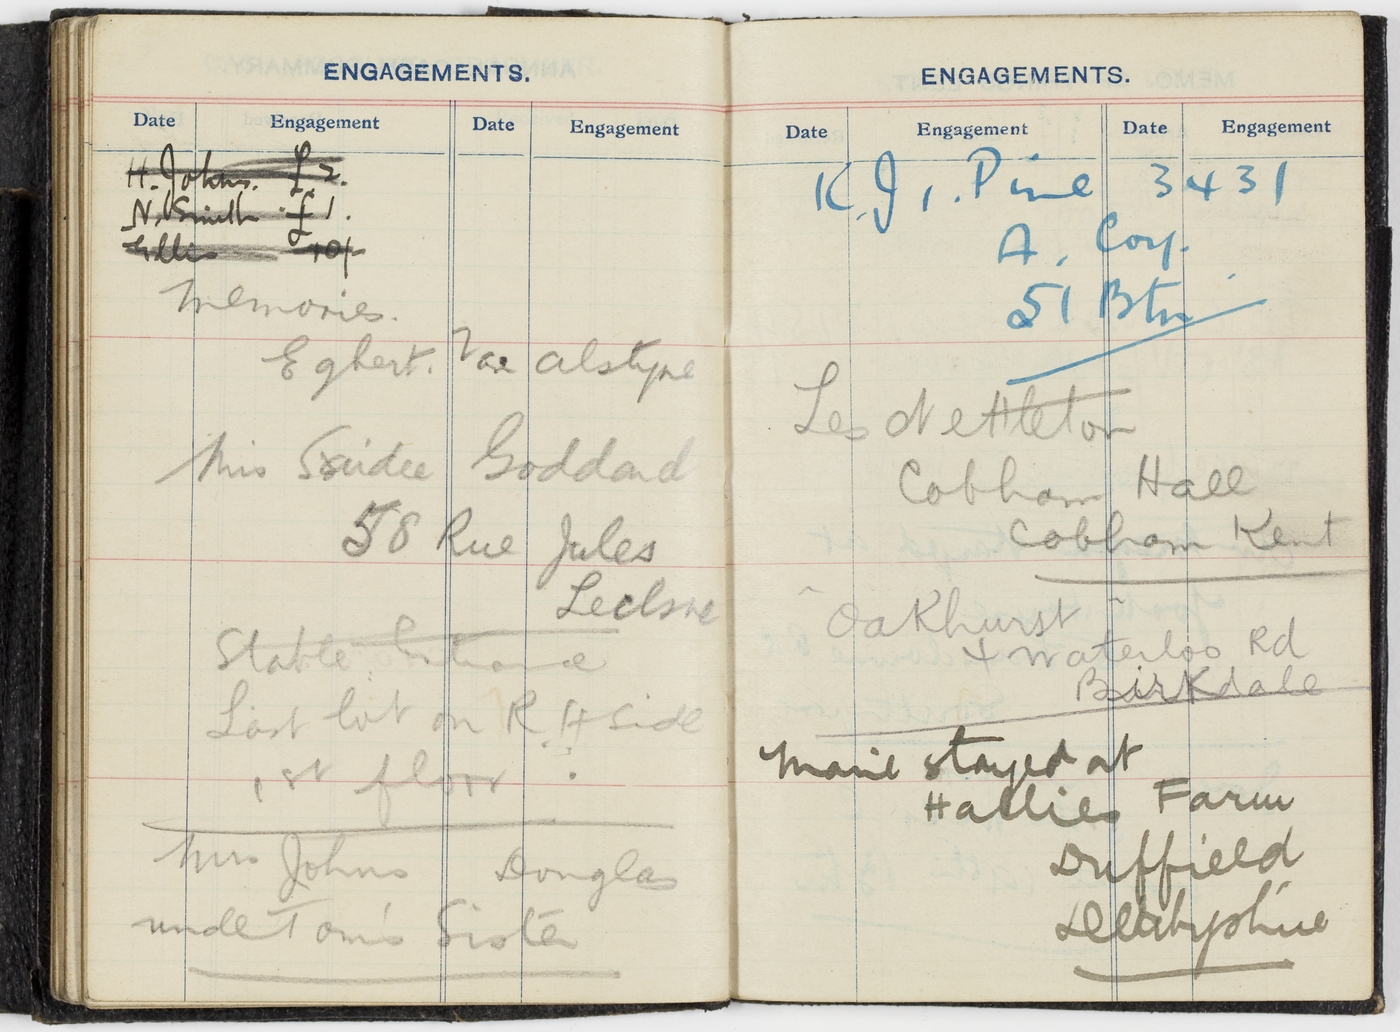 ENGAGEMENTS.
Date Engagement Date Engagement
H. Johns. £2.
N. Smith £1.
Ellis 10/-
Memories.
Egbert. Van Alstyne
Miss Goddard
58 Rue Jules
Stable Entrance
Last but on R.H side
1st floor.
Mrs Johns Douglas
uncle Tom's Sister
ENGAGEMENTS.
Date Engagement Date Engagement
K. J. Pine 3431
A. Coy.
51 Btn
Les Nettleton
Cobham Hall
Cobham Kent
"Oakhurst"
4 Waterloo Rd
Birkdale
Marie stayed at
Hallies Farm
Duffield
Derbyshire